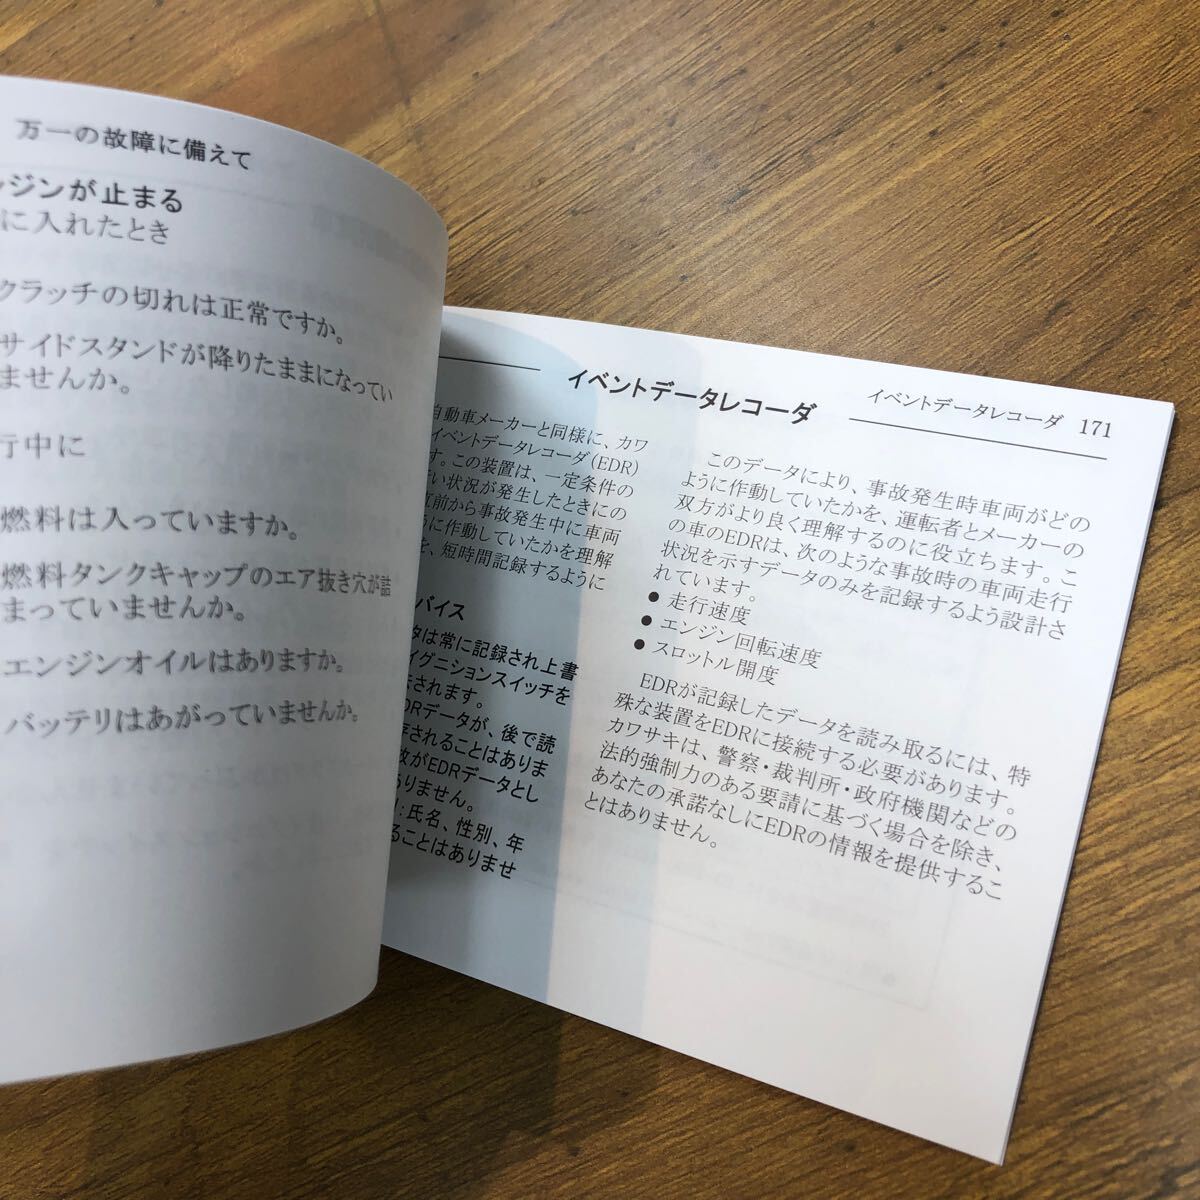 万一の故障に備えて
ンジンが止まる
に入れたとき
クラッチの切れは正常ですか。
サイドスタンドが降りたままになってい
ませんか。
行中に
燃料は入っていますか。
燃料タンクキャップのエア抜き穴が詰
まっていませんか。
エンジンオイルはありますか。
バッテリはあがっていませんか。
イベントデータレコーダ 171
イベントデータレコーダ
自動車メーカーと同様に、カワ
イベントデータレコーダ(EDR)
す。この装置は、一定条件の
い状況が発生したときにの
直前から事故発生中に車両
うに作動していたかを理解
を、短時間記録するように
バイス
タは常に記録され上書
イグニションスイッチを
去されます。
DRデータが、後で読
存されることはありま
故がEDRデータとし
ありません。
：氏名、性別、年
ることはありませ
このデータにより、事故発生時車両がどの
ように作動していたかを、運転者とメーカーの
双方がより良く理解するのに役立ちます。こ
の車のEDRは、次のような事故時の車両走行
状況を示すデータのみを記録するよう設計さ
れています。
● 走行速度
● エンジン回転速度
● スロットル開度
EDRが記録したデータを読み取るには、特
殊な装置をEDRに接続する必要があります。
カワサキは、警察・裁判所・政府機関などの
法的強制力のある要請に基づく場合を除き、
あなたの承諾なしにEDRの情報を提供するこ
とはありません。